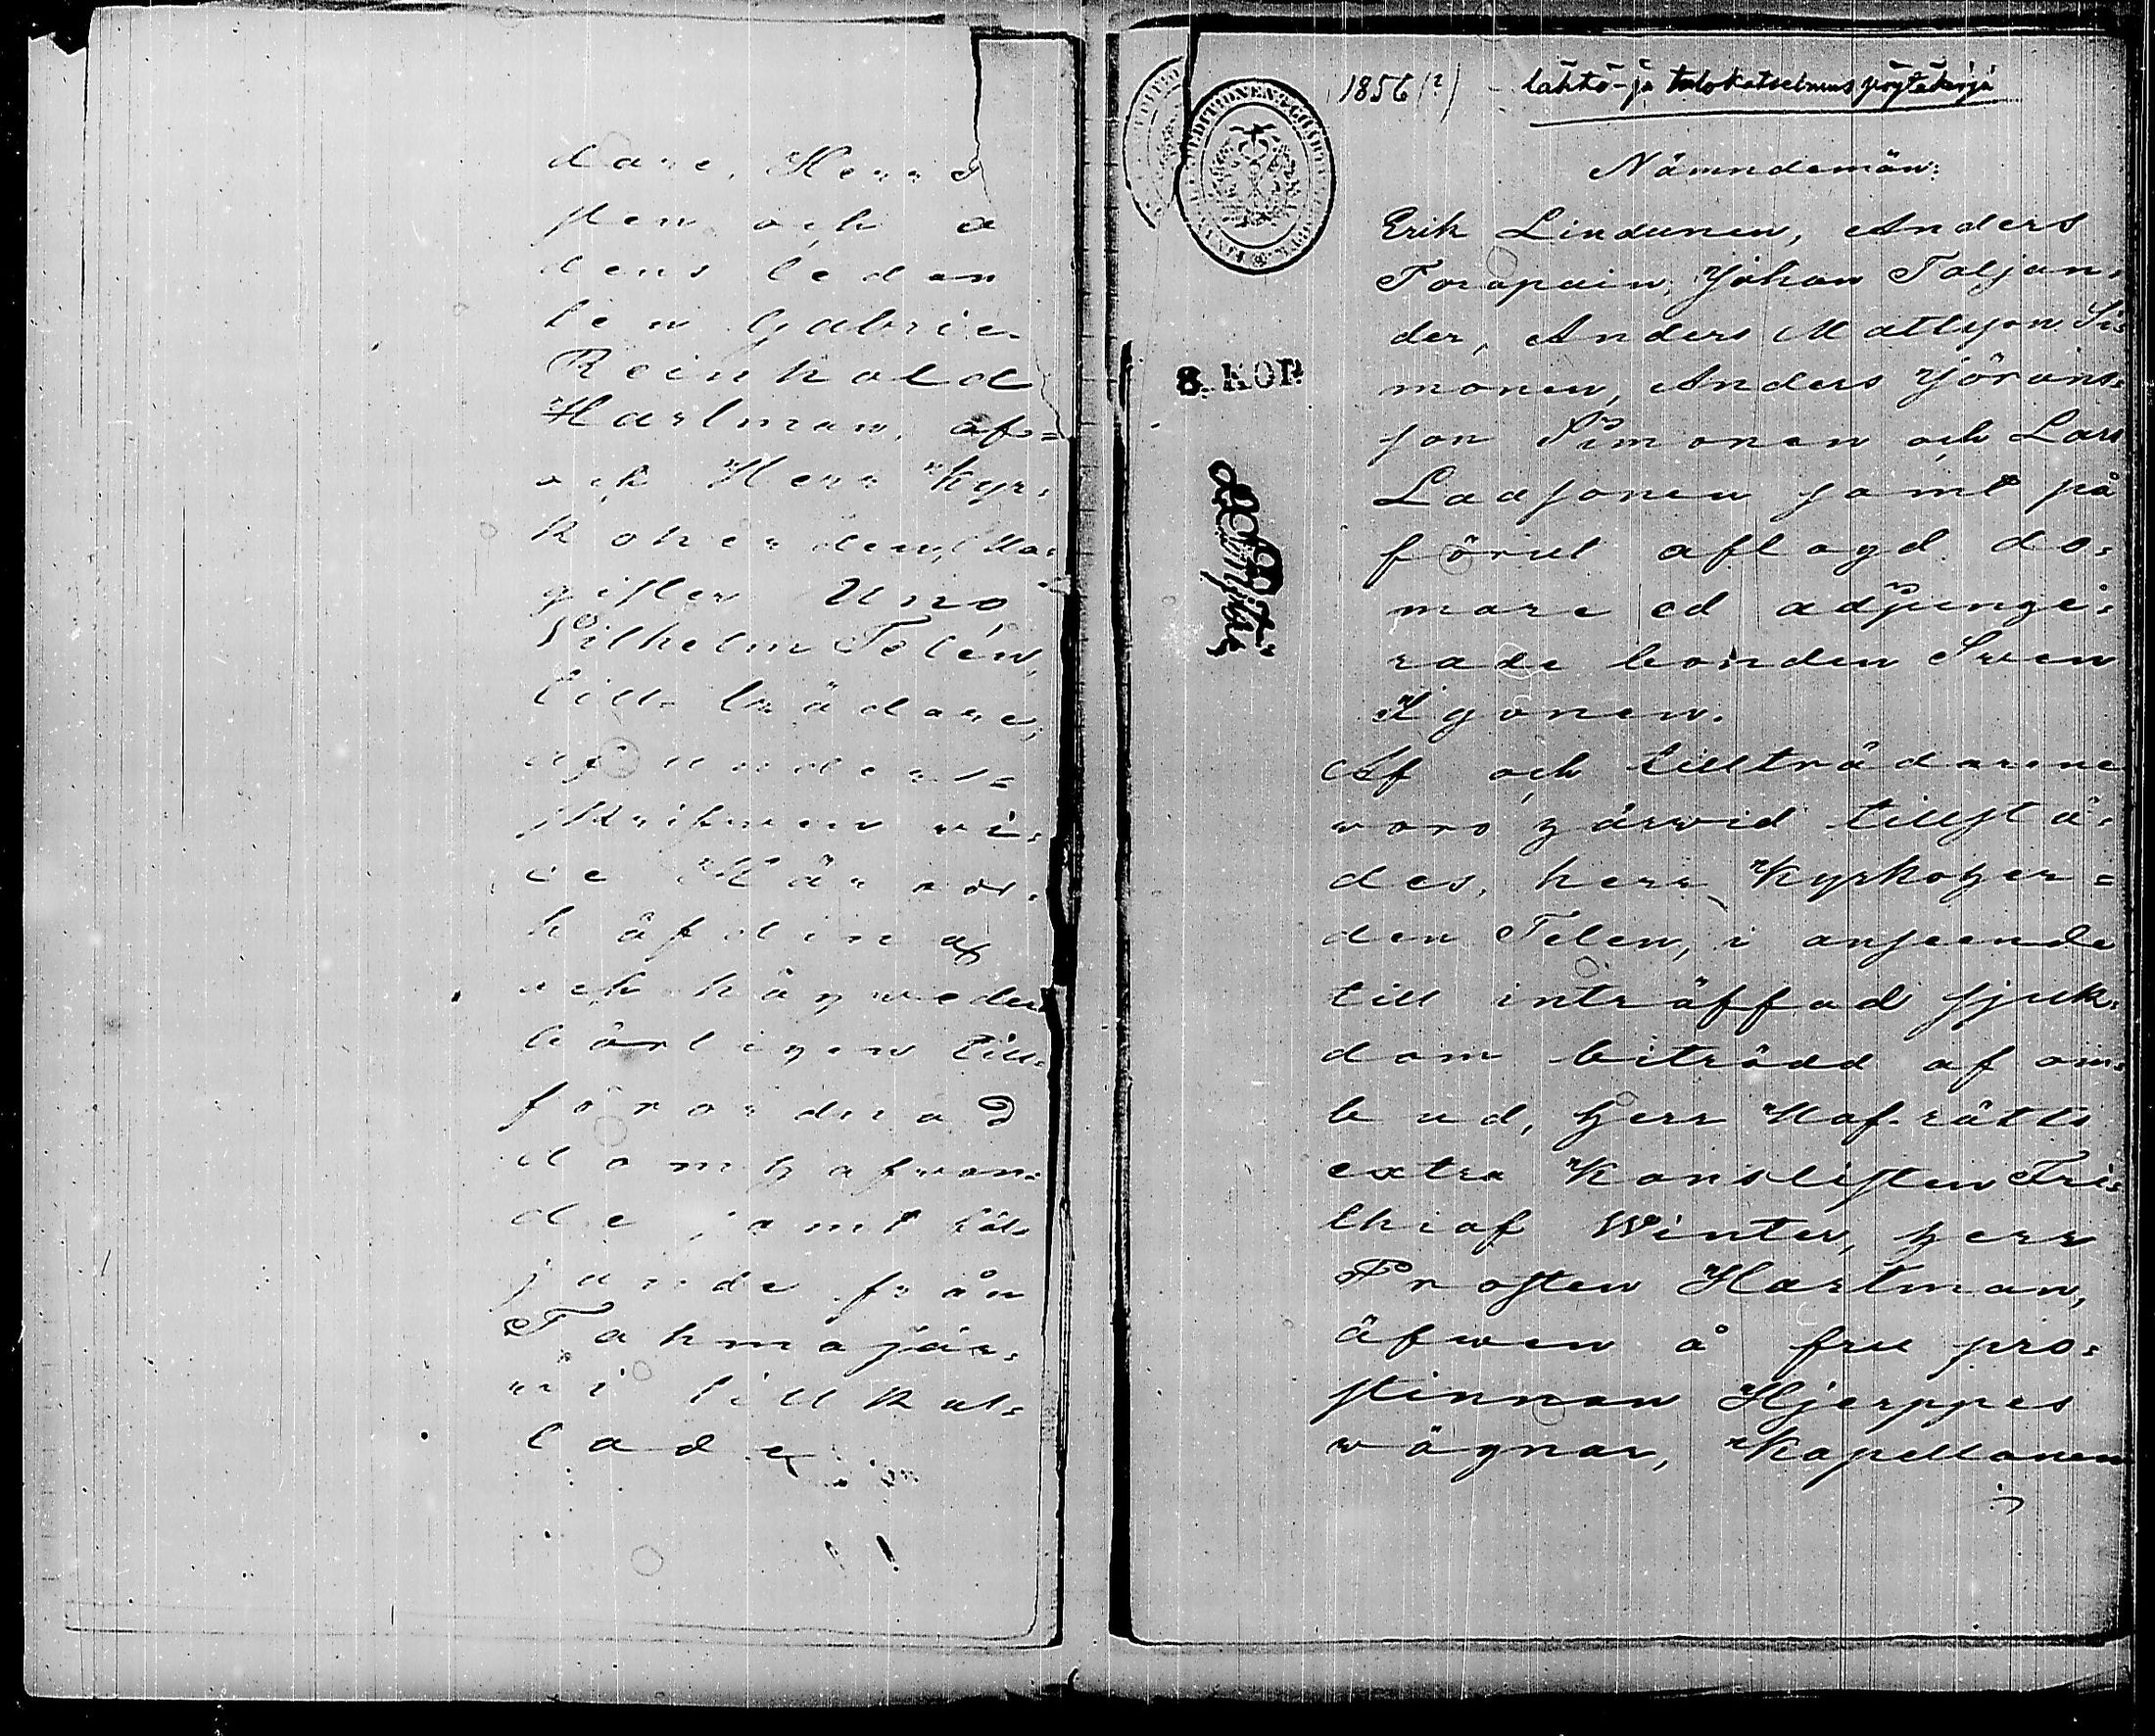 dare, Herr
sten och
dens ledam
ten Gabrie
Reinhold
Hartman, af=
och Herr Kyr=
koherden, Ma=
gister Uno
Vilhelm Telén,
tillträdare,
af undert=
skrifven vi=
ce Härads=
höfding
och härweder
börligen till=
förordnad
domhafwan=
de samt föl=
jande från
Tohmajär=
wi tillkal=
lade
1856 (?) - lähtö- ja tulokatselmus pöytäkirja
Nämndemän:
Erik Lindunen, Anders
Toropain, Johan Taljan=
der, Anders Mattson Si=
monen, Anders Jörans=
son Simonen och Lars
Laasonen samt på
förut aflagd do=
mare ed adjunge=
rade bonden Swen
Igonen.
Af och tillträdarene
woro härwid tillstä=
des, herr Kyrkoher=
den Telen, i anseende
till inträffad sjuk=
dom biträdd af om=
bud, Herr Hof-rätts
extra Kanslisten Fri=
thiof Winter, herr
Prosten Hartman,
äfwen å fru pro=
stinnan Hjerppes
wägnar, Kapellanen
8. KOP.